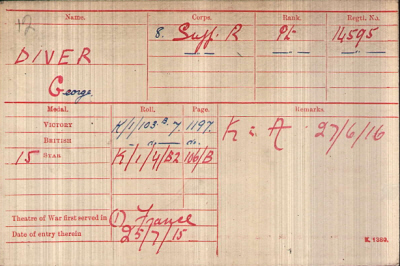 Name. Corps. Rank. Regtl. No.
12
8. Suff. R Pte 14595
DIVER
George.
Medal. Roll. Page. Remarks.
VICTORY K/1/103.B.7. 1197.
BRITISH — " — — " —
15 STAR K/1/4/B2 106/B
K in A 27/6/16
Theatre of War first served in (1) France
Date of entry therein 25/7/15
K. 1380.